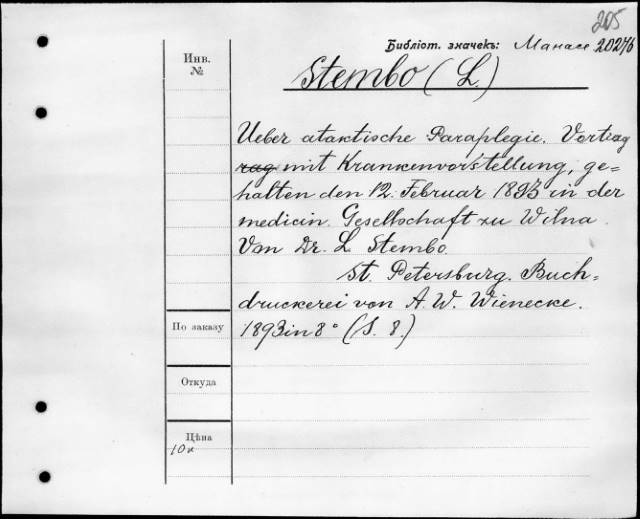 205
Библіот. значекъ: Манасе 20276
Инв. №
Stembo (L.)
Ueber ataktische Paraplegie. Vortrag
rag mit Krankenvorstellung, ge=
halten den 12. Februar 1893 in der
medicin. Gesellschaft zu Wilna.
Von Dr. L Stembo.
St. Petersburg. Buch=
druckerei von A. W. Wienecke.
По заказу
1893 in 8° (S. 8.)
Откуда
Цѣна
10к